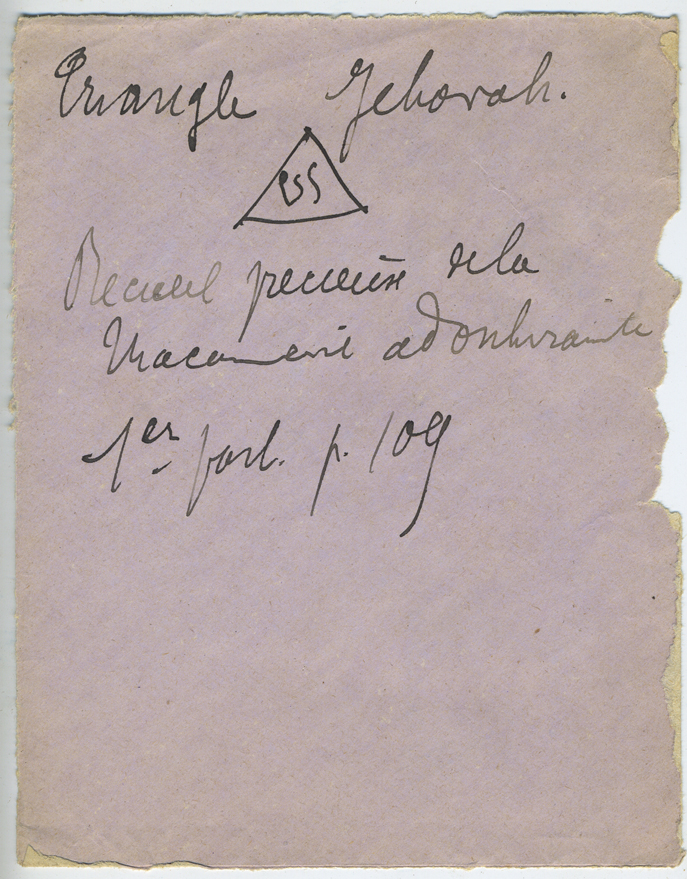 Triangle Jehovah.
Recueil precieux de la
Maconnerie adonhiramite
1er part. p. 109